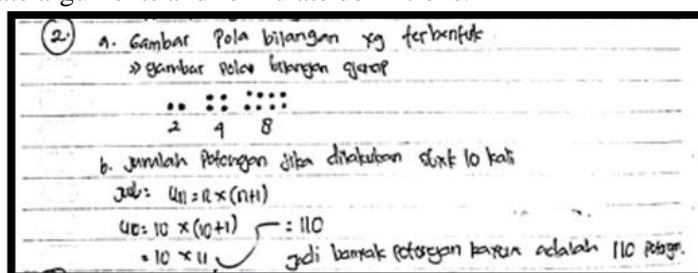 2. a. Gambar Pola bilangan yg terbentuk
» gambar Pola bilangan genap
2 4 8
b. Jumlah Potongan jika dilakukan sbnk 10 kali
Jwb: Un = n x (n+1)
U10 = 10 x (10+1) = 110
= 10 x 11
Jadi banyak Potongan adalah 110 Potongn.